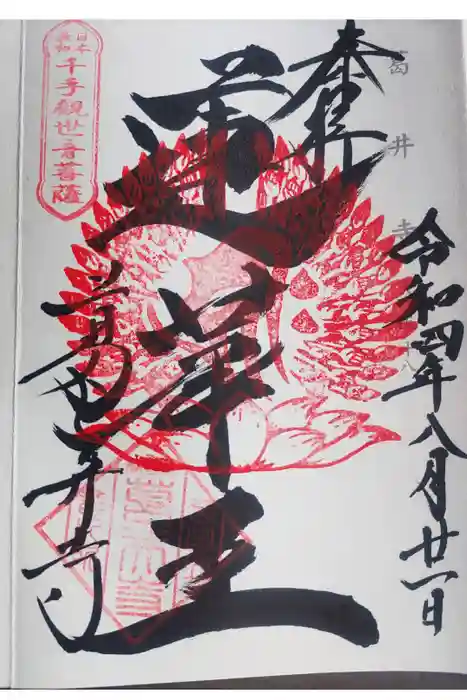 葛井寺
奉拝
令和四年八月廿一日
蓮華王
葛井寺
日本
最初
千手觀世音菩薩